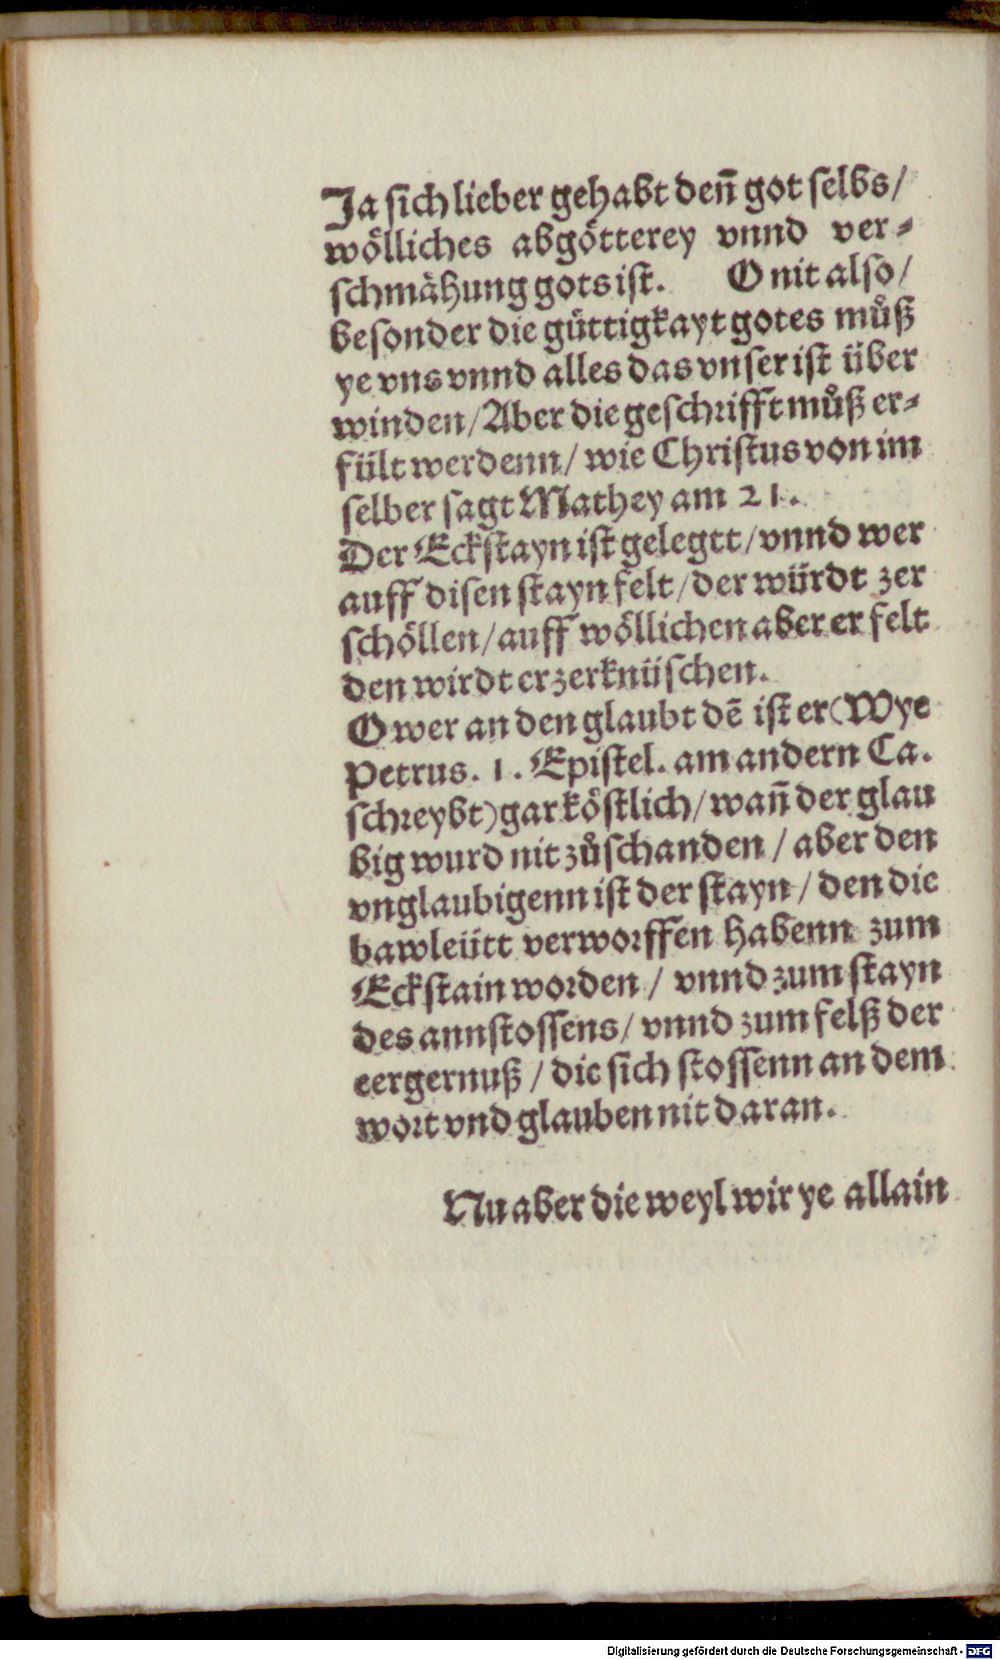 Ja sich lieber gehabt deñ got selbs/
wölliches abgötterey vnnd ver⸗
schmähung gots ist. O nit also/
besonder die güttigkayt gotes můß
ye vns vnnd alles das vnser ist über
winden/Aber die geschrifft můß er⸗
fült werdenn/ wie Christus von im
selber sagt Mathey am 21.
Der Eckstayn ist gelegtt/vnnd wer
auff disen stayn felt/der würdt zer
schöllen/auff wöllichen aber er felt
den wirdt er zerknüschen.
O wer an den glaubt dē ist er(Wye
Petrus. 1. Epistel. am andern Ca.
schreybt)gar köstlich/wañ der glau
big wurd nit zůschanden/aber den
vnglaubigenn ist der stayn/den die
bawleütt verworffen habenn zum
Eckstain worden/ vnnd zum stayn
des annstossens/vnnd zum felß der
eergernuß/die sich stossenn an dem
wort vnd glauben nit daran.
Nu aber die weyl wir ye allain
Digitalisierung gefördert durch die Deutsche Forschungsgemeinschaft - DFG